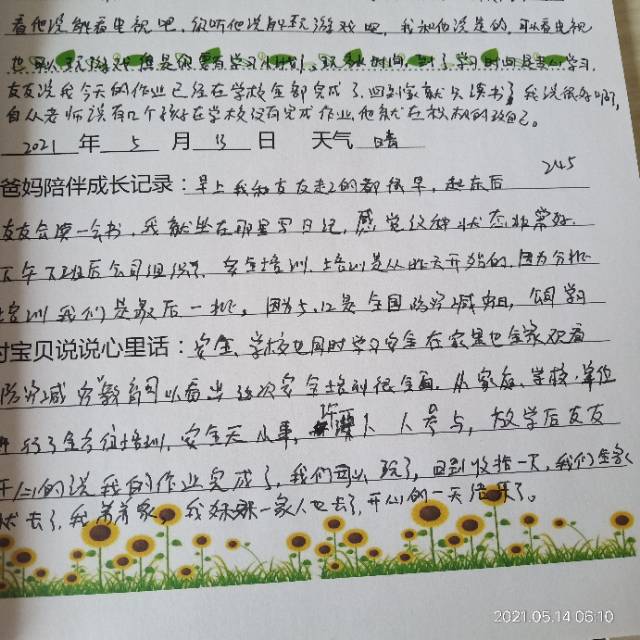 看他没能看电视吧,
我和他说是的,可以看电视
也可以玩游戏,但是你要有学习小计划,玩多长时间,到了学习时间就去学习,
友友说我今天的作业已经在学校全部完成了,回到家就只读书了,我说很好啊,
自从老师说有几个孩子在学校没有完成作业,他就在
2021 年 5 月 13 日 天气 晴
245
爸妈陪伴成长记录:早上我和友友起的都很早,起床后
友友会读一会书,我就坐在那里写日记,感觉这种状态非常好.
下午下班后公司组织了安全培训,培训是从昨天开始的,因为分批
培训我们是最后一批,因为5.12是全国防灾减灾日,公司学习
对宝贝说说心里话:安全,学校也同时学习安全在家里也全家观看
防灾减灾教育可以看出这次安全培训很全面,从家庭、学校、单位
进行了全方位培训,安全无小事,需要人人参与,放学后友友
开心的说我的作业完成了,我们可以玩了,回到收拾一下,我们全家
就去了,我弟弟家,我妹妹一家人也去了,开心的一天结束了。
2021.05.14 06:10